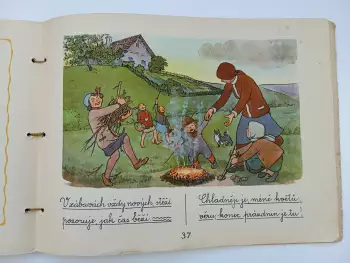 V zábavách vždy nových stěží
pozoruje, jak čas běží.
Chladněji je, méně květů,
věru konec prázdnin je tu!
37